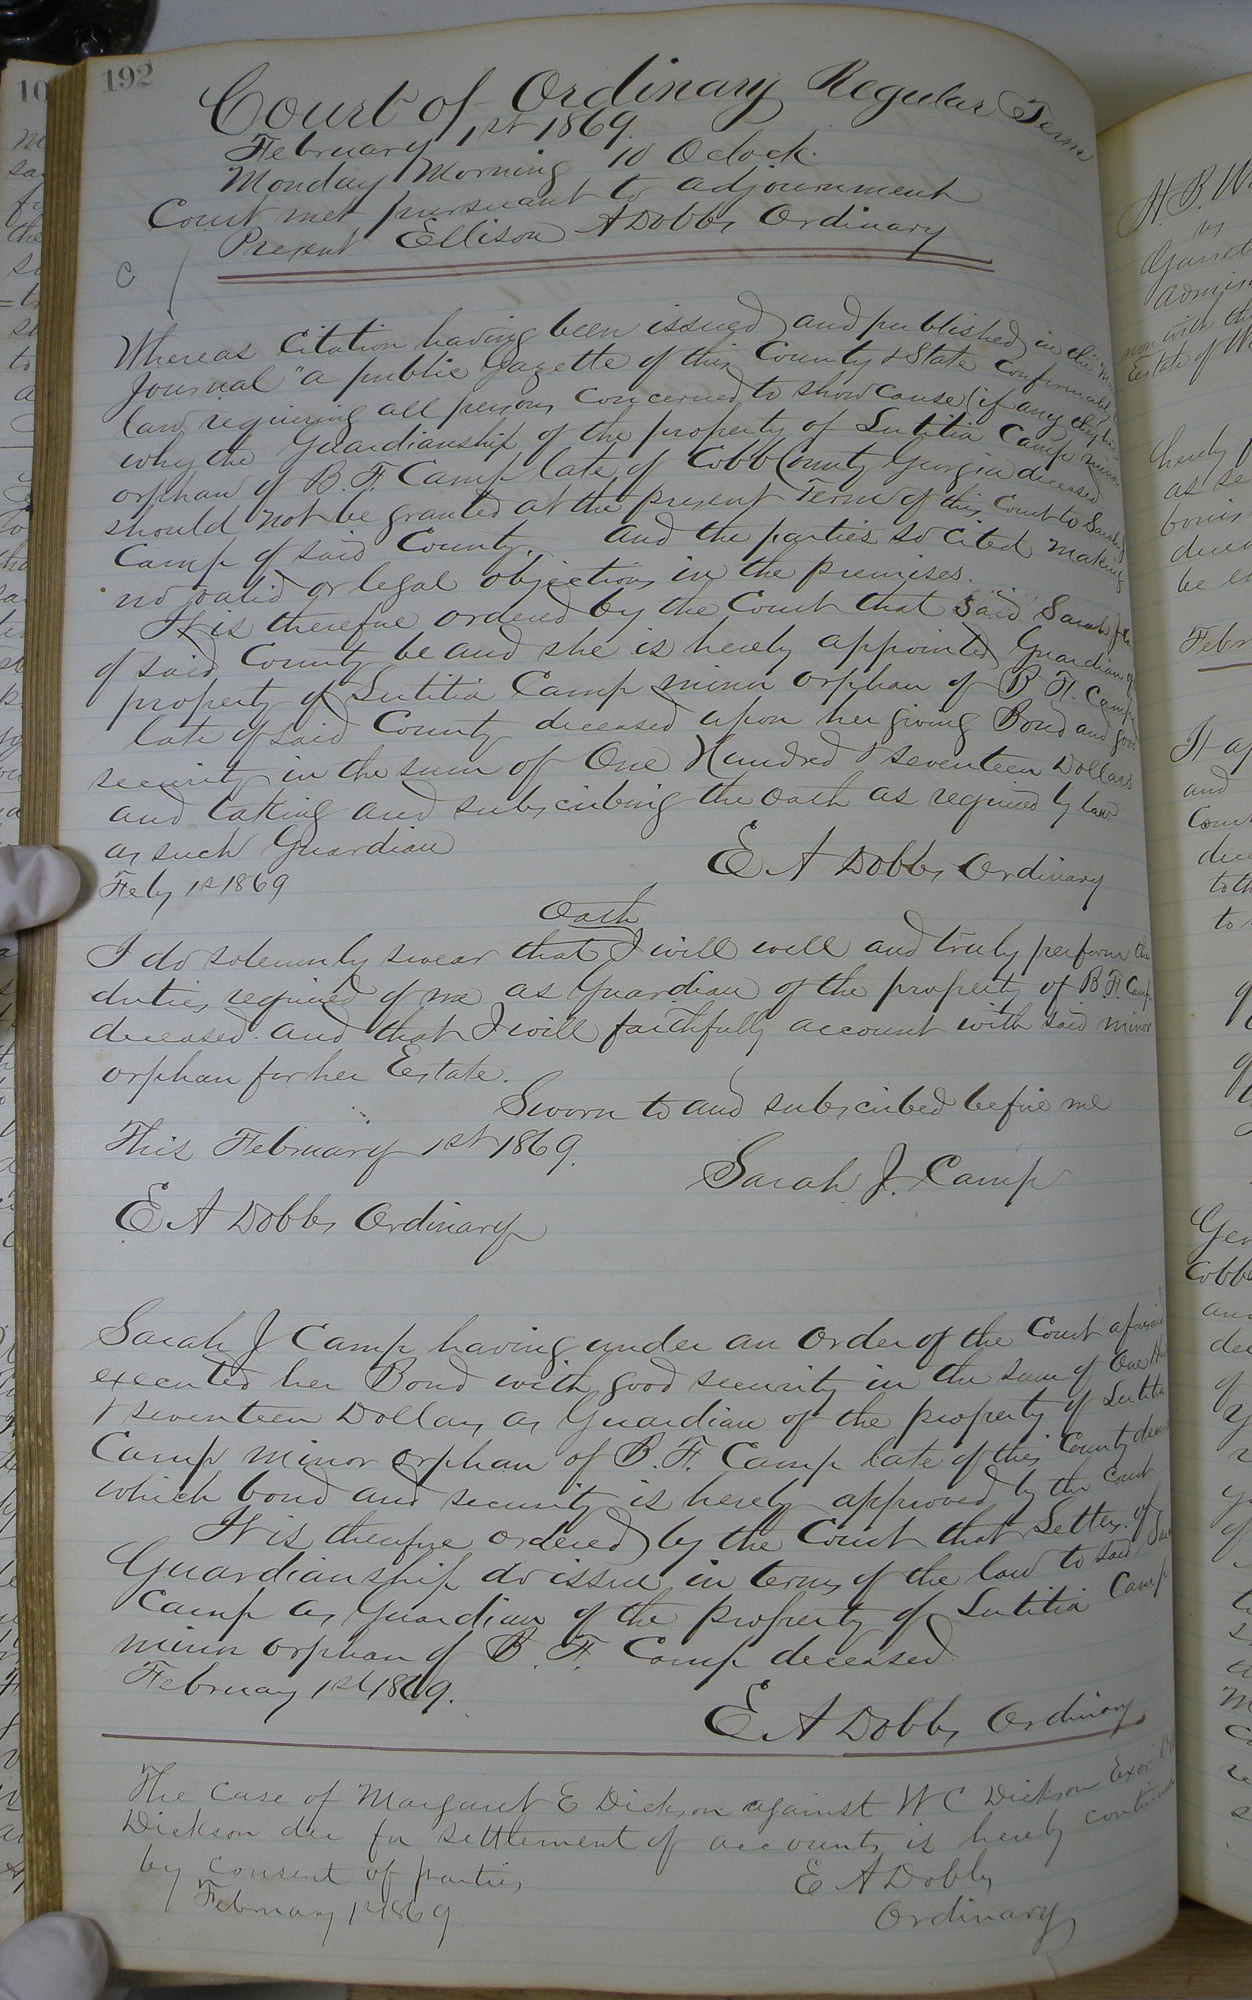 192
Court of Ordinary Regular Term
February 1st 1869.
Monday Morning 10 Oclock.
Court met pursuant to adjournment
Present Ellison A Dobbs Ordinary
Whereas Citation having been issued and published in the
Journal" a public gazette of this County & State
law requiring all persons concerned to show cause (if any they
why the Guardianship of the property of Lutitia Camp minor
orphan of B. F. Camp late of Cobb County Georgia deceased
should not be granted at the present Term of this Court to Sarah J
Camp of said County. and the parties so cited making
no valid or legal objections in the premises.
It is therefore ordered by the Court that said Sarah J
of said County be and she is hereby appointed Guardian of
property of Lutitia Camp minor orphan of B F. Camp
late of said County deceased upon her giving Bond and good
security in the sum of One Hundred & seventeen Dollars
and taking and subscribing the oath as required by law
as such Guardian
Feby 1st 1869
E A Dobbs Ordinary
Oath
I do solemnly swear that I will well and truly perform the
duties required of me as Guardian of the property of B. F. Camp
deceased and that I will faithfully account with said minor
orphan for her Estate.
Sworn to and subscribed before me
This February 1st 1869.
Sarah J. Camp
E A Dobbs Ordinary
Sarah J Camp having under an order of the Court aforesaid
executed her Bond with good security in the sum of One
& seventeen Dollars as Guardian of the property of Lutitia
Camp minor orphan of B. F. Camp late of this County
which bond and security is hereby approved by the Court
It is therefore ordered by the Court that Letters of
Guardianship do issue in terms of the law to said
Camp as Guardian of the property of Lutitia Camp
minor orphan of B. F. Camp deceased
February 1st 1869.
E A Dobbs Ordinary
The case of Margaret E Dickson against W C Dickson Exor
Dickson dec for settlement of accounts is hereby continued
by consent of parties
February 1st 1869
E A Dobbs
Ordinary